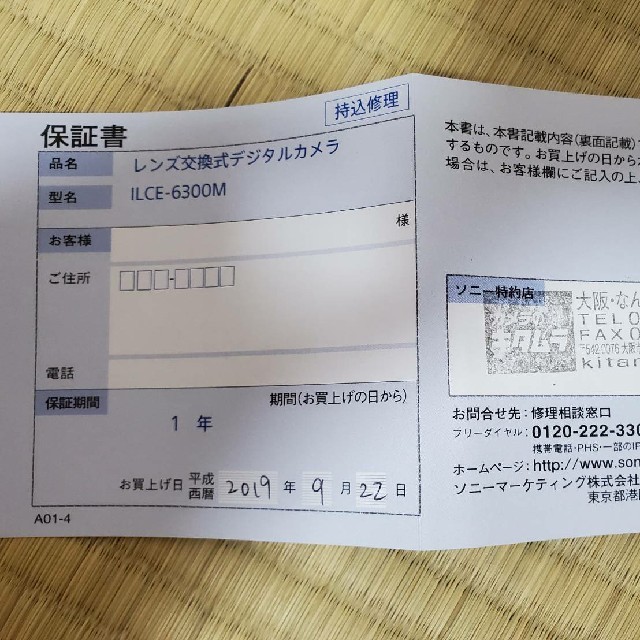 持込修理
保証書
品名 レンズ交換式デジタルカメラ
型名 ILCE-6300M
お客様 様
ご住所 □□□-□□□□
電話
保証期間 期間(お買上げの日から)
1 年
お買上げ日 平成 西暦 2019 年 9 月 22 日
A01-4
本書は、本書記載内容(裏面記載)
するものです。お買上げの日から
場合は、お客様欄にご記入の上
ソニー特約店
大阪・なん
キタムラ
TEL0
FAX0
〒542-0076 大阪
kitam
お問合せ先:修理相談窓口
フリーダイヤル:0120-222-330
携帯電話・PHS・一部のIP
ホームページ:http://www.son
ソニーマーケティング株式会社
東京都港